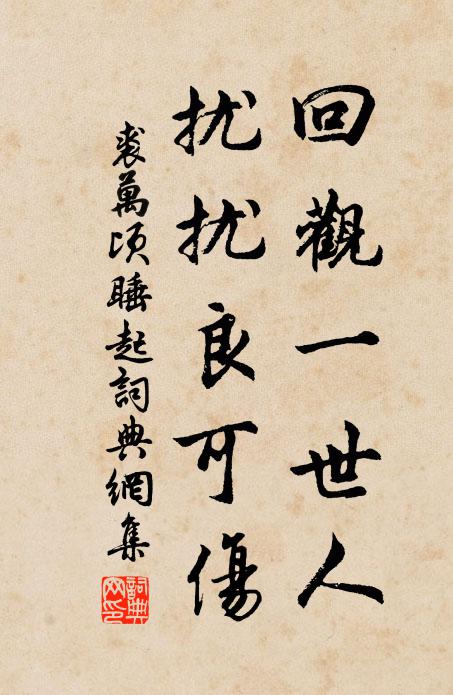 回觀一世人
扰扰良可傷
裘萬頃睡起詞典網集
詞典网印